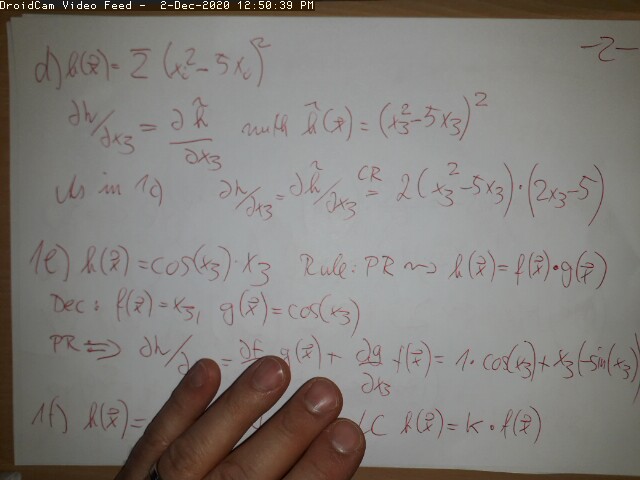 DroidCam Video Feed - 2-Dec-2020 12:50:39 PM
-2-
d) h(x⃗) = Σ (xᵢ² - 5xᵢ)²
∂h/∂x₃ = ∂h̃/∂x₃ with h̃(x⃗) = (x₃² - 5x₃)²
As in 1c) ∂h/∂x₃ = ∂h̃/∂x₃ CR= 2(x₃² - 5x₃)·(2x₃ - 5)
1e) h(x⃗) = cos(x₃)·x₃ Rule: PR ⇝ h(x⃗) = f(x⃗)·g(x⃗)
Dec: f(x⃗) = x₃, g(x⃗) = cos(x₃)
PR ⇒ ∂h/∂ = ∂f g(x⃗) + ∂g/∂x₃ f(x⃗) = 1·cos(x₃) + x₃(-sin(x₃)
1f) h(x⃗) = LC h(x⃗) = K·f(x⃗)